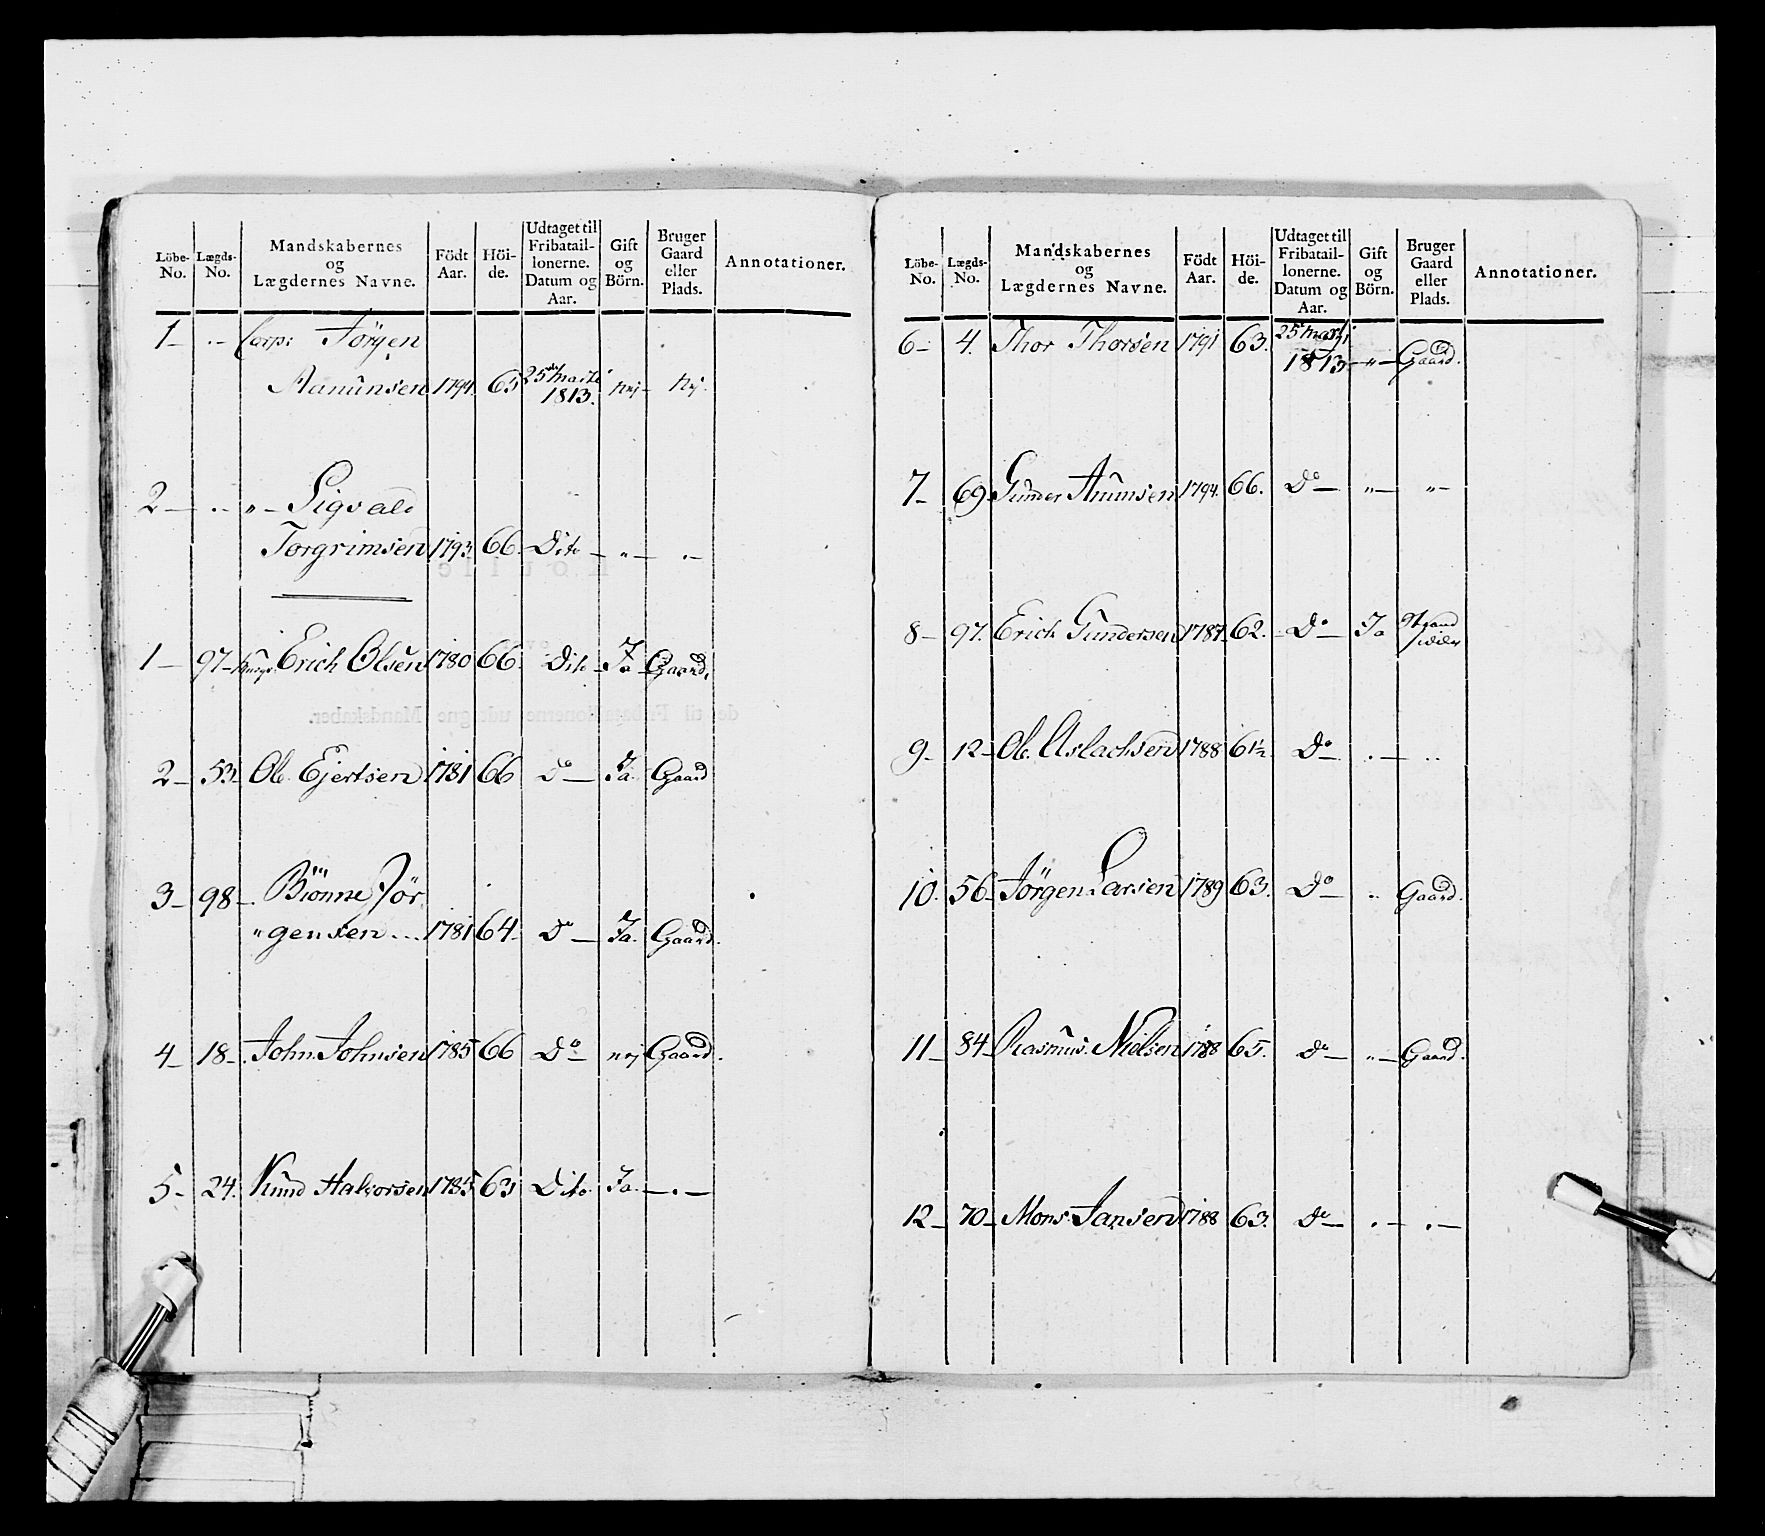 Löbe-No. Lægds-No. Mandskabernes og Lægdernes Navne. Födt Aar. Höi-de. Udtaget til Fribatail-lonerne. Datum og Aar. Gift og Börn. Bruger Gaard eller Plads. Annotationer.
1 — .. — Corp: Jörgen
Aanunsen 1794. 65 25de Martii 1813. nej — Nej.
2 — .. — „ — Sigvald
Torgrimsen 1793. 66. Dito — „ — „ —
1 — 97 — Erich Olsen 1780 66. Dito — Ja — Gaard.
2 — 53. Ole Ejertsen 1781 66 Do — Ja. Gaard
3 — 98 — Biönne Jör
„gensen ... 1781 64 — Do — Ja. Gaard.
4 — 18 — John Johnsen 1785 66 Do — nej Gaard.
5 — 24. Knud Halvorsen 1785 63 Dito. Ja. — . —
Löbe-No. Lægds-No. Mandskabernes og Lægdernes Navne. Födt Aar. Höi-de. Udtaget til Fribatail-lonerne. Datum og Aar. Gift og Börn. Bruger Gaard eller Plads. Annotationer.
6 — 4. Thor Thorsen 1791 63. 25de Martii
1813 — „ — Gaard.
7 — 69. Gunder Anunsen 1794. 66. Do — „ — „ —
8 — 97. Erich Gundersen 1787. 62. Do — Ja Strand
sidder
9 — 12 — Ole Aslachsen 1788 61½ Do — . — ..
10. 56 — Jörgen Larsen 1789 63. Do — „ Gaard.
11 — 84 — Rasmus Nielsen 1788 65. Do — „ — Gaard.
12 — 70 — Mons Jansen 1788 63. Do — . — . —